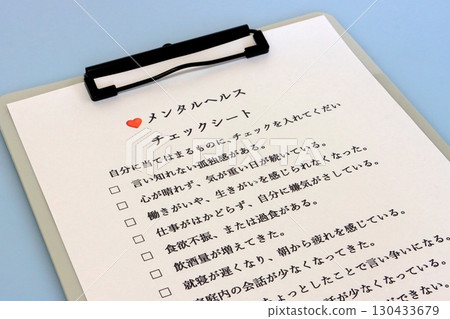 メンタルヘルス
チェックシート
自分に当てはまるものに、チェックを入れてくだい
言い知れない孤独感がある。
心が晴れず、気が重い日が続いている。
働きがいや、生きがいを感じられなくなった。
仕事がはかどらず、自分に嫌気がさしている。
食欲不振、または過食がある。
飲酒量が増えてきた。
就寝が遅くなり、朝から疲れを感じている。
庭内の会話が少なくなってきた。
ょっとしたことで言い争いになる。
話が少なくなっている。
できない。
130433679